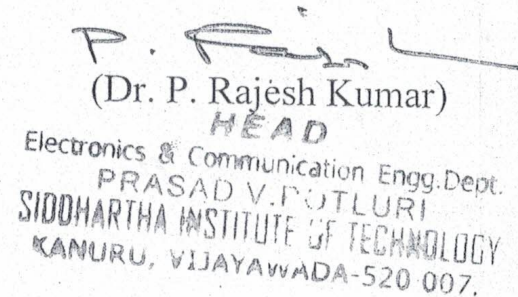 P. Raj
(Dr. P. Rajesh Kumar)
HEAD
Electronics & Communication Engg.Dept.
PRASAD V.POTLURI
SIDDHARTHA INSTITUTE OF TECHNOLOGY
KANURU, VIJAYAWADA-520 007.